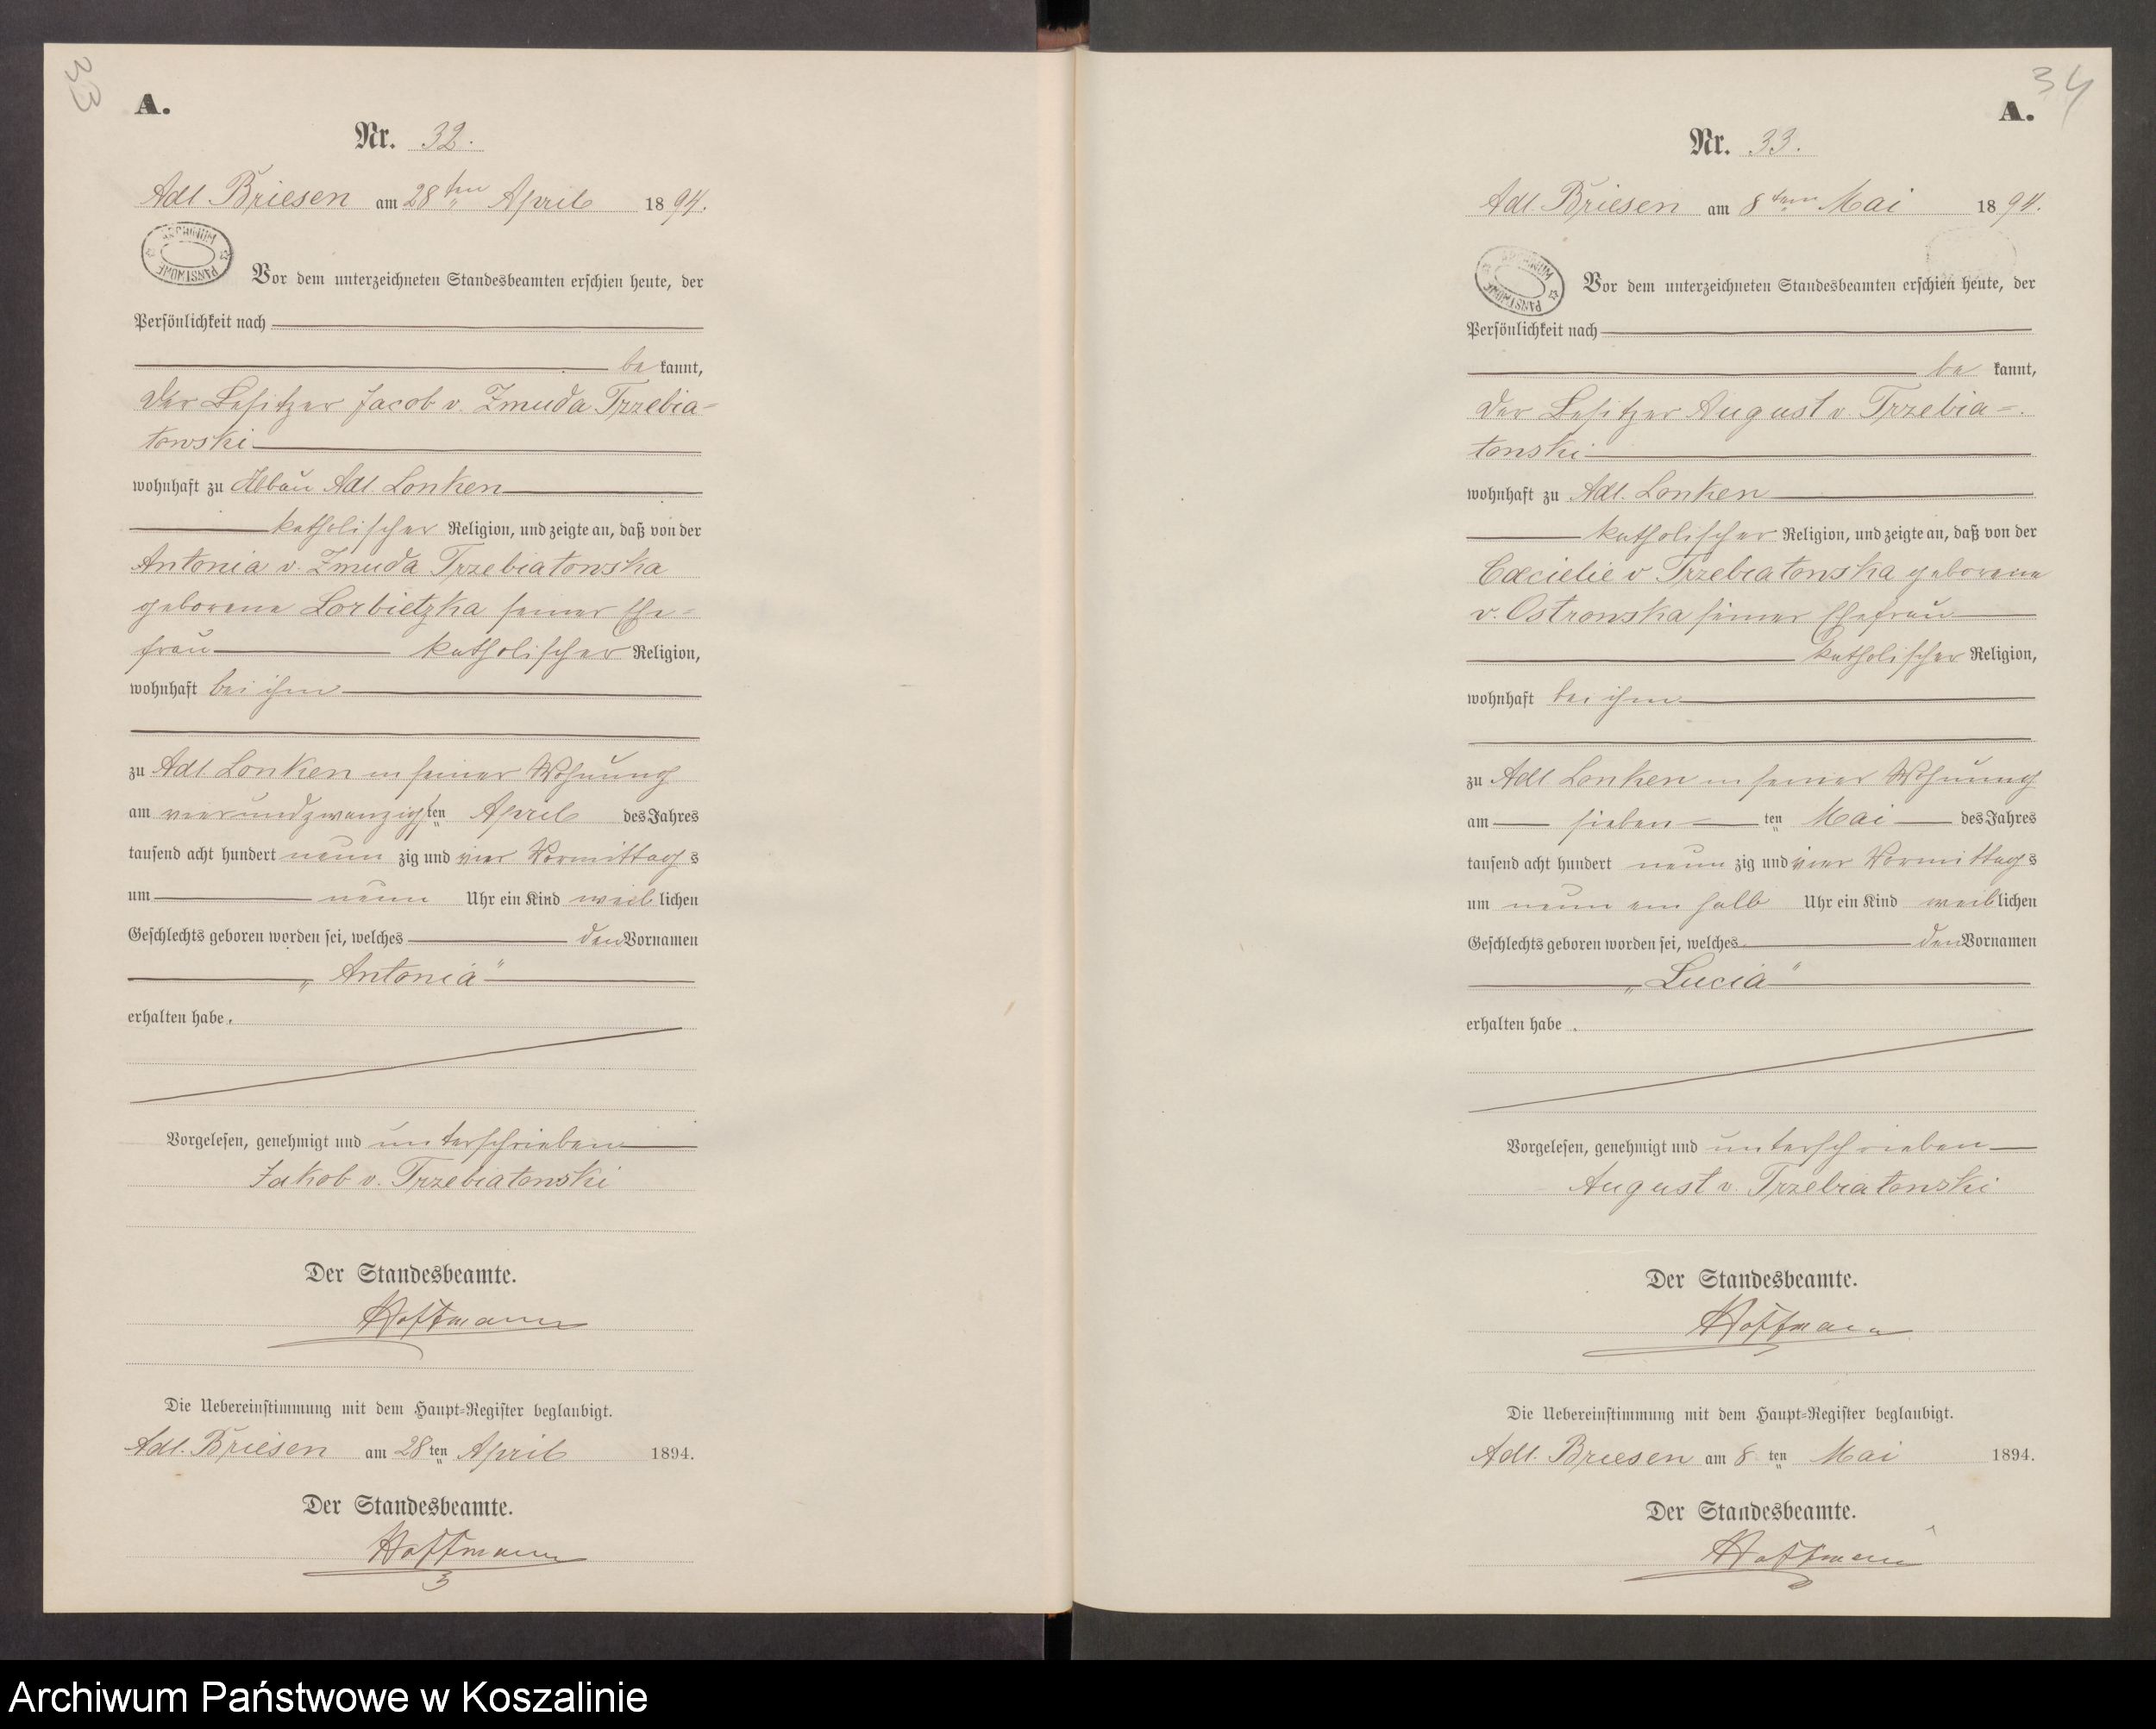 33
A.
Nr. 32.
Adl. Briesen am 28ten April 1894.
ARCHIWUM PAŃSTWOWE
Vor dem unterzeichneten Standesbeamten erschien heute, der
Persönlichkeit nach
be kannt,
der Besitzer Jacob v. Zmuda Trzebia-
towski
wohnhaft zu Abbau Adl. Lonken
katholischer Religion, und zeigte an, daß von der
Antonia v. Zmuda Trzebiatowska
geborene Lorbietzka seiner Ehe-
frau katholischer Religion,
wohnhaft bei ihm
zu Adl Lonken in seiner Wohnung
am vierundzwanzigsten April des Jahres
tausend acht hundert neun zig und vier Vormittags
um neun Uhr ein Kind weib lichen
Geschlechts geboren worden sei, welches den Vornamen
„Antonia“
erhalten habe.
Vorgelesen, genehmigt und unterschrieben
Jakob v. Trzebiatowski
Der Standesbeamte.
Hoffmann
Die Uebereinstimmung mit dem Haupt-Register beglaubigt.
Adl. Briesen am 28ten April 1894.
Der Standesbeamte.
Hoffmann
34
A.
Nr. 33.
Adl. Briesen am 8ten Mai 1894.
ARCHIWUM PAŃSTWOWE
Vor dem unterzeichneten Standesbeamten erschien heute, der
Persönlichkeit nach
be kannt,
der Besitzer August v. Trzebia-
towski
wohnhaft zu Adl. Lonken
katholischer Religion, und zeigte an, daß von der
Caecielie v Trzebiatowska geborene
v. Ostrowska seiner Ehefrau
katholischer Religion,
wohnhaft bei ihm
zu Adl Lonken in seiner Wohnung
am sieben ten Mai des Jahres
tausend acht hundert neun zig und vier Vormittags
um neun ein halb Uhr ein Kind weiblichen
Geschlechts geboren worden sei, welches den Vornamen
„Lucia“
erhalten habe.
Vorgelesen, genehmigt und unterschrieben
August v. Trzebiatowski
Der Standesbeamte.
Hoffmann
Die Uebereinstimmung mit dem Haupt-Register beglaubigt.
Adl. Briesen am 8ten Mai 1894.
Der Standesbeamte.
Hoffmann
Archiwum Państwowe w Koszalinie